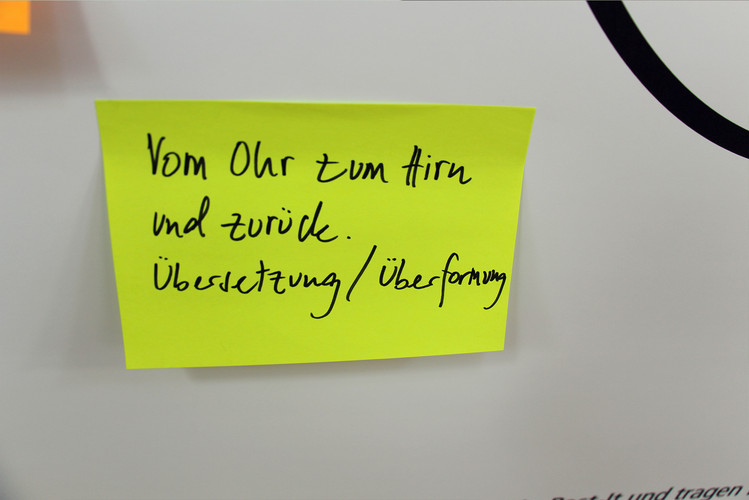 Vom Ohr zum Hirn
und zurück.
Übersetzung / Überformung
und tragen